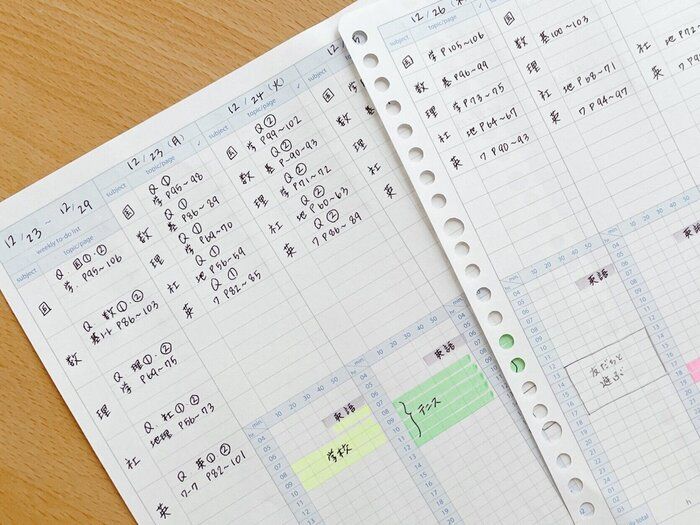 12/23 ~ 12/29
weekly to-do list
subject topic/page
国 Q 国①・②
学. P95~106
数 Q 数①・②
基ﾉｰﾄ P86~103
理 Q 理①・②
学 P69~75
社 Q 社①・②
地理 P56~73
英 Q 英①・②
ワーク P82~101
12/23 (月)
subject topic/page
国 Q ①
学 P95~98
数 Q ①
基 P86~89
理 Q ①
学 P69~70
社 Q ①
地 P56~59
英 Q ①
ワ P82~85
12/24 (火)
subject topic/page
国 Q ②
学 P99~102
数 Q ②
基 P~90~93
理 Q ②
学 P71~72
社 Q ②
地 P60~63
英 Q ②
ワ P86~89
hr min 10 20 30 40 50
04
05
06
07
08
09
10
11
12
英語
学校
hr min 10 20 30 40 50
英語
テニス
12/26 (木)
subject topic/page
国 学 P105~106
数 基 P96~99
理 学 P73~75
社 地 P64~67
英 ワ P90~93
基 100~103
地 P68~71
ワ P94~97
社 地 P72~
英
10 20 30 40 50
英語
友だちと
遊ぶ